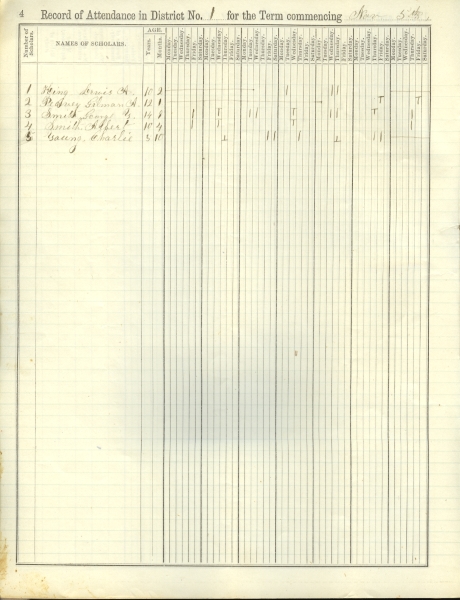 4 Record of Attendance in District No. 1 for the Term commencing 5th
Number of Scholars. NAMES OF SCHOLARS. AGE. Years. Months. Monday. Tuesday. Wednesday. Thursday. Friday. Saturday. Monday. Tuesday. Wednesday. Thursday. Friday. Saturday. Monday. Tuesday. Wednesday. Thursday. Friday. Saturday. Monday. Tuesday. Wednesday. Thursday. Friday. Saturday. Monday. Tuesday. Wednesday. Thursday. Friday. Saturday. Monday. Tuesday. Wednesday. Thursday. Friday. Saturday. Monday. Tuesday. Wednesday. Thursday. Friday. Saturday.
1 Lewis A. 10 2
2 Gilman A. 12 1
3 Smith George 14 8
4 Smith Albert 10 4
5 Charlie 5 10